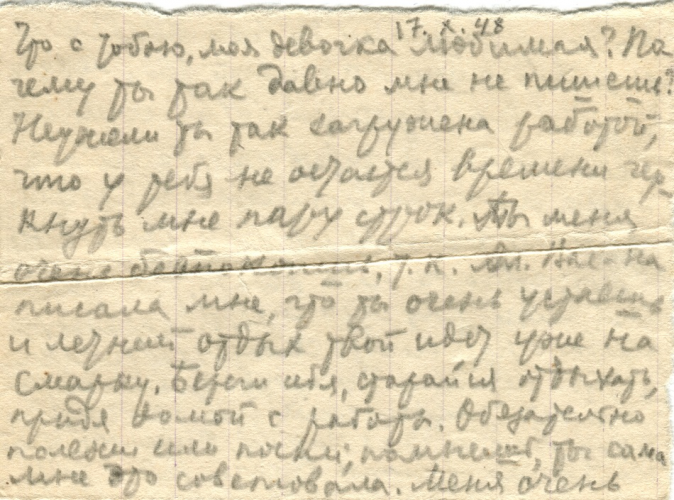 17.X.48
Что с тобою, моя девочка любимая? По-
чему ты так давно мне не пишешь?
Неужели ты так загружена работой,
что у тебя не остается времени чер-
кнуть мне пару строк. Ты меня
очень беспокоишь, т.к.
писала мне, что ты очень устаешь
и летний отдых твой идет уже на
смарку. Береги себя, старайся отдыхать,
придя домой с работы. Обязательно
полежи или поспи; помнишь, ты сама
мне это советовала. Меня очень